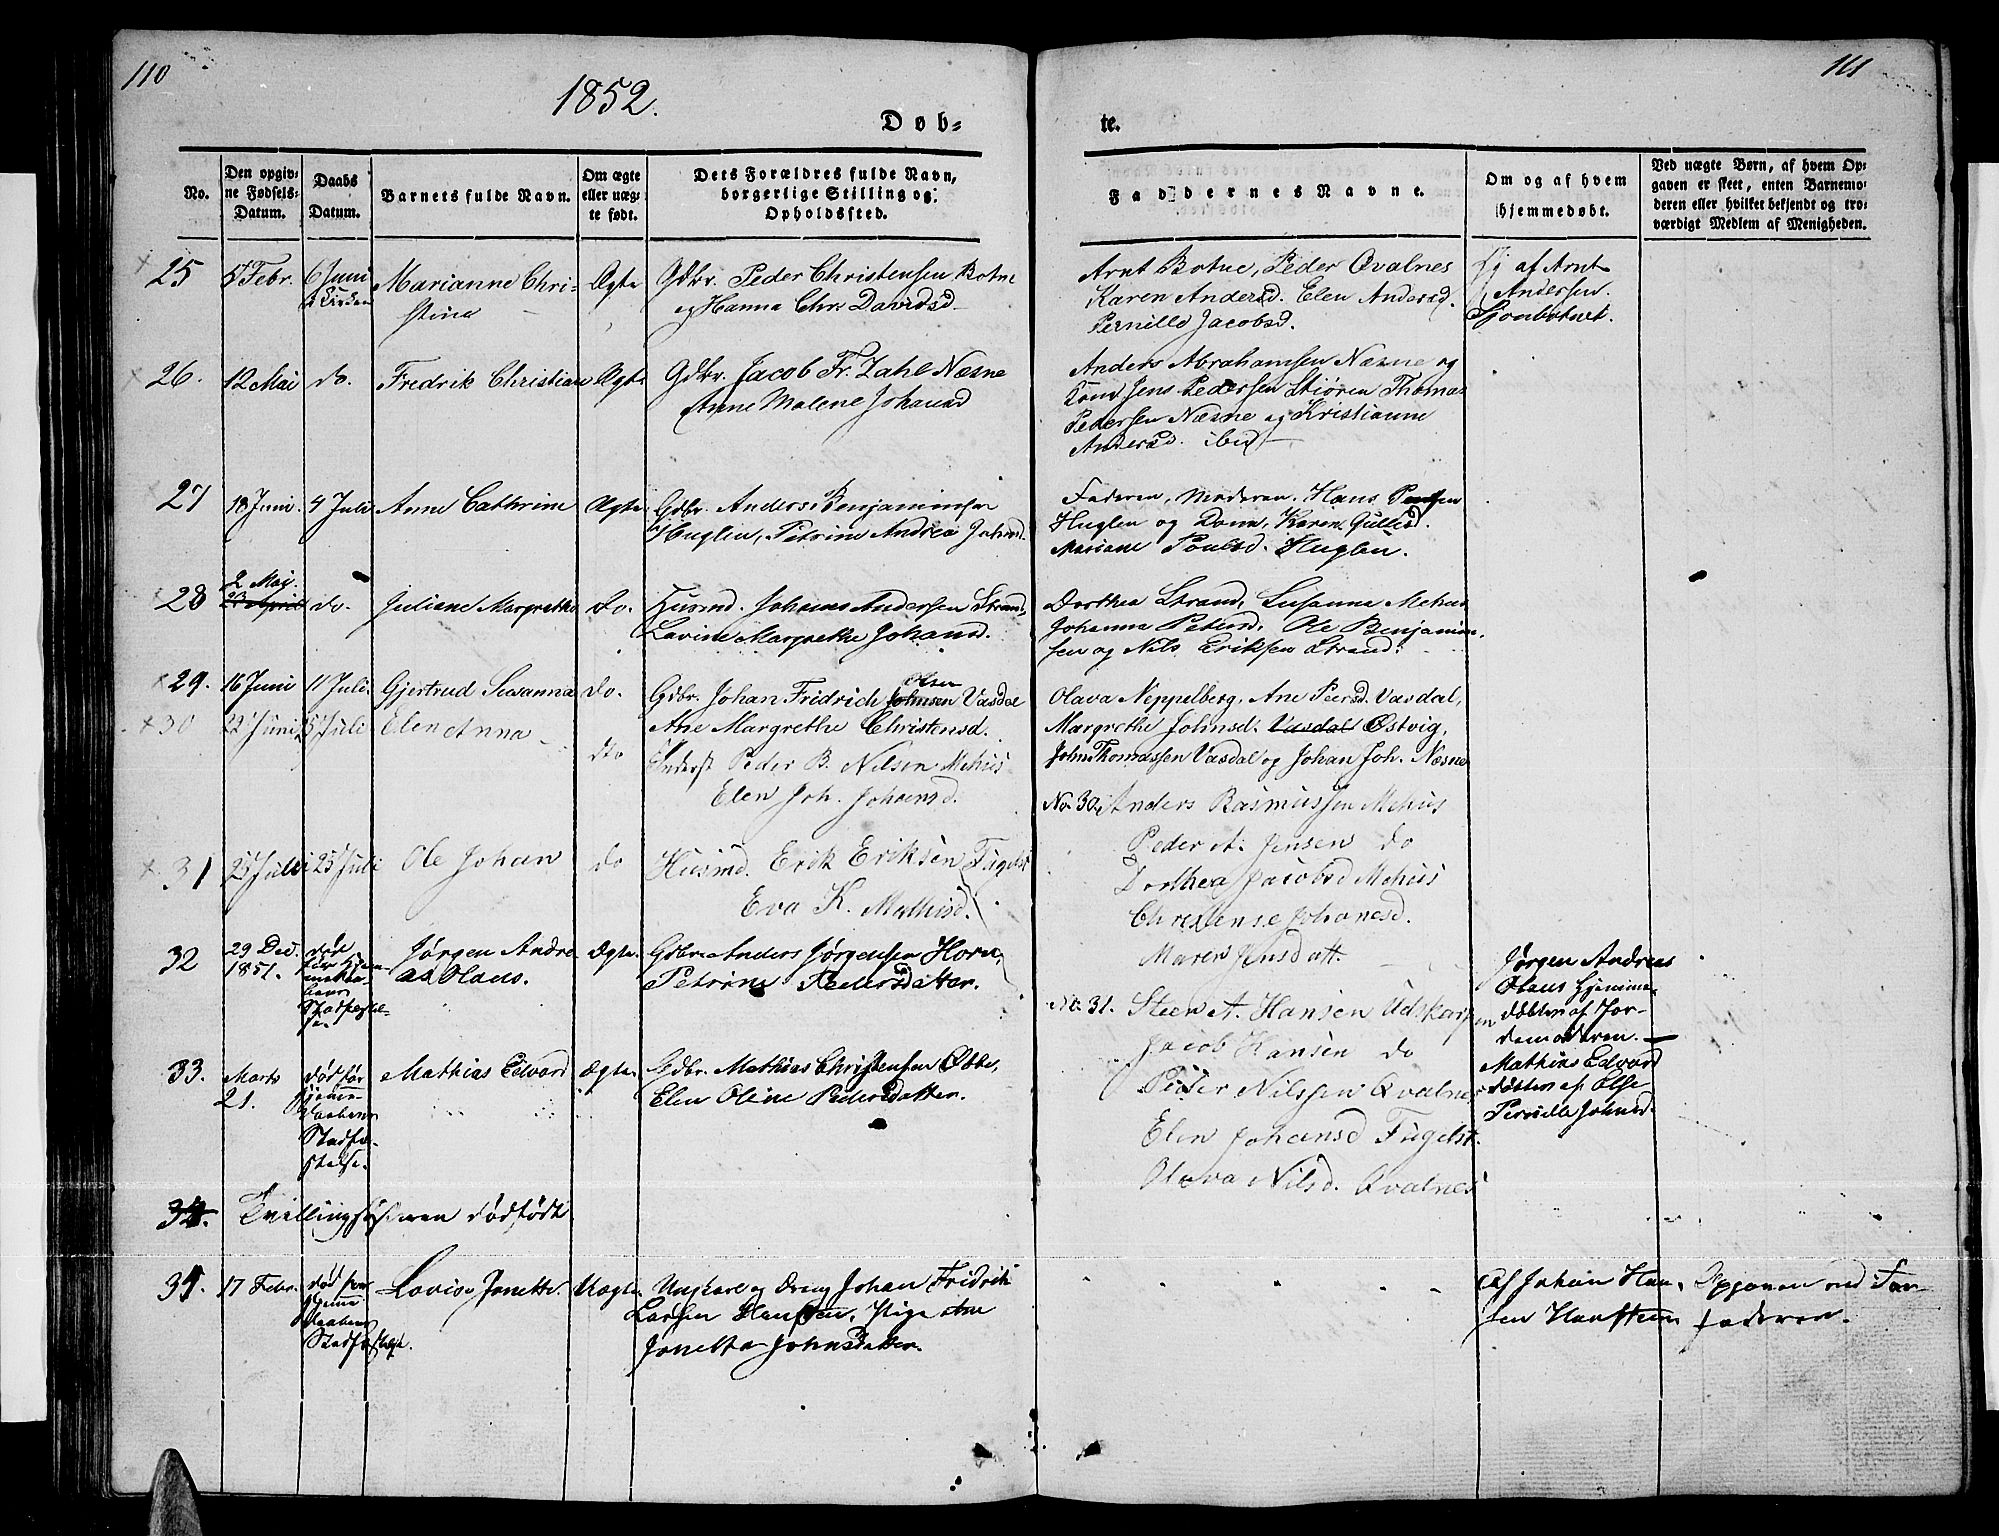 110
111
1852.
Døb-
te.
No.
Den opgiv-
ne Fødsels-
Datum.
Daabs
Datum.
Barnets fulde Navn.
Om ægte
eller uæg-
te født.
Dets Forældres fulde Navn,
borgerlige Stilling og
Opholdssted.
Faddernes Navne.
Om og af hvem
hjemmedøbt.
Ved uægte Børn, af hvem Op-
gaven er skeet, enten Barnemo-
deren eller hvilket bekjendt og tro-
værdigt Medlem af Menigheden.
25
5 Febr.
6 Juni
Marianne Chri-
stine
Ægte
Gdbr. Peder Christensen Botne
og Hanna Chr. Davidsd
Arnt Botne, Peder Qvalnes
Karen Andersd. Elen Andersd.
Pernille Jacobsd.
af Arnt
Andersen
Sjonbotnet.
26.
12 Mai
do.
Fredrik Christian
Ægte
Gdbr. Jacob Fr. Zahl Næsne
Anne Malene Johansd
Anders Abrahamsen Næsne og
Kone Jens Pedersen Thomas
Pedersen Næsne og Kristianne
Andersd. ibid
27
18 Juni
4 Juli
Anne Cathrine
Ægte
Gdbr. Anders Benjaminsen
Huglen, Petrine Andrea Johnsd.
Faderen, Moderen. Hans
Huglen og Kone, Karen
Mariane Poulsd. Huglen.
28
2 Mai
23 April
do.
Juliane Margrethe
do.
Husmd. Johan Andersen Strand
Lavine Margrethe Johansd.
Dorthea Strand, Susanna Mehus
Johanna Petersd, Ole Benjamin-
sen og Nils Eriksen Strand.
29.
16 Juni
11 Juli.
Gjertrud Susanna
do.
Olsen
Gdbr. Johan Fridrich Johnsen Vasdal
Ane Margrethe Christensd.
Olava Neppelberg, Ane Peersd Vasdal,
Margrethe Johnsd. Vasdal Østvig,
John Thomassen Vasdal og Johan Joh. Næsne
30
22 Juni
25 Juli
Elen Anna
dto
Inderst Peder B. Nilsen Mehus
Elen Joh. Johansd.
No. 30, Anders Rasmussen Mehus
Peder A. Jensen do
Dorthea Jacobsd Mehus
Christense Johanesd.
Maren Jensdatt.
31
25 Juli
Ole Johan
do
Husmd. Erik Eriksen Fugelst
Eva K. Mathisd.
No. 31. Steen A. Hansen Udskarpen
Jacob Hansen do
Peder Nilssen Qvalnes
Elen Johansd Fugelst.
Olava Nilsd. Qvalnes
32
29 Dec.
1851.
død
før Hjem-
medaa-
bens
Stadfæstel-
se.
Jørgen Andre
as Olaus.
Ægte.
Gdbr. Anders Jørgensen Horn,
Petrine Pedersdatter.
Jørgen Andreas
Olaus hjemme-
døbt af Jor-
demoderen.
33.
Marts
21.
død før
hjemme-
daabens
Stadfæ-
stelse.
Mathias Edvard
Ægte.
Gdbr. Mathias Christensen
Elen Oline Pedersdatter.
Mathias Edvard
døbt af Else
Pernille Johnsd.
34.
Tvillingsøsteren dødfødt
34.
17 Febr.
død før
hjemme
daabens
Stadfæstelse.
Lovise Janette.
Uægte.
Ungkarl og Dreng Johan Fridrik
Larsen Hansteen, Pige Ane
Janetta Johnsdatter.
Af Johan Han-
sen Hansteen
Opgaven ved
faderen.